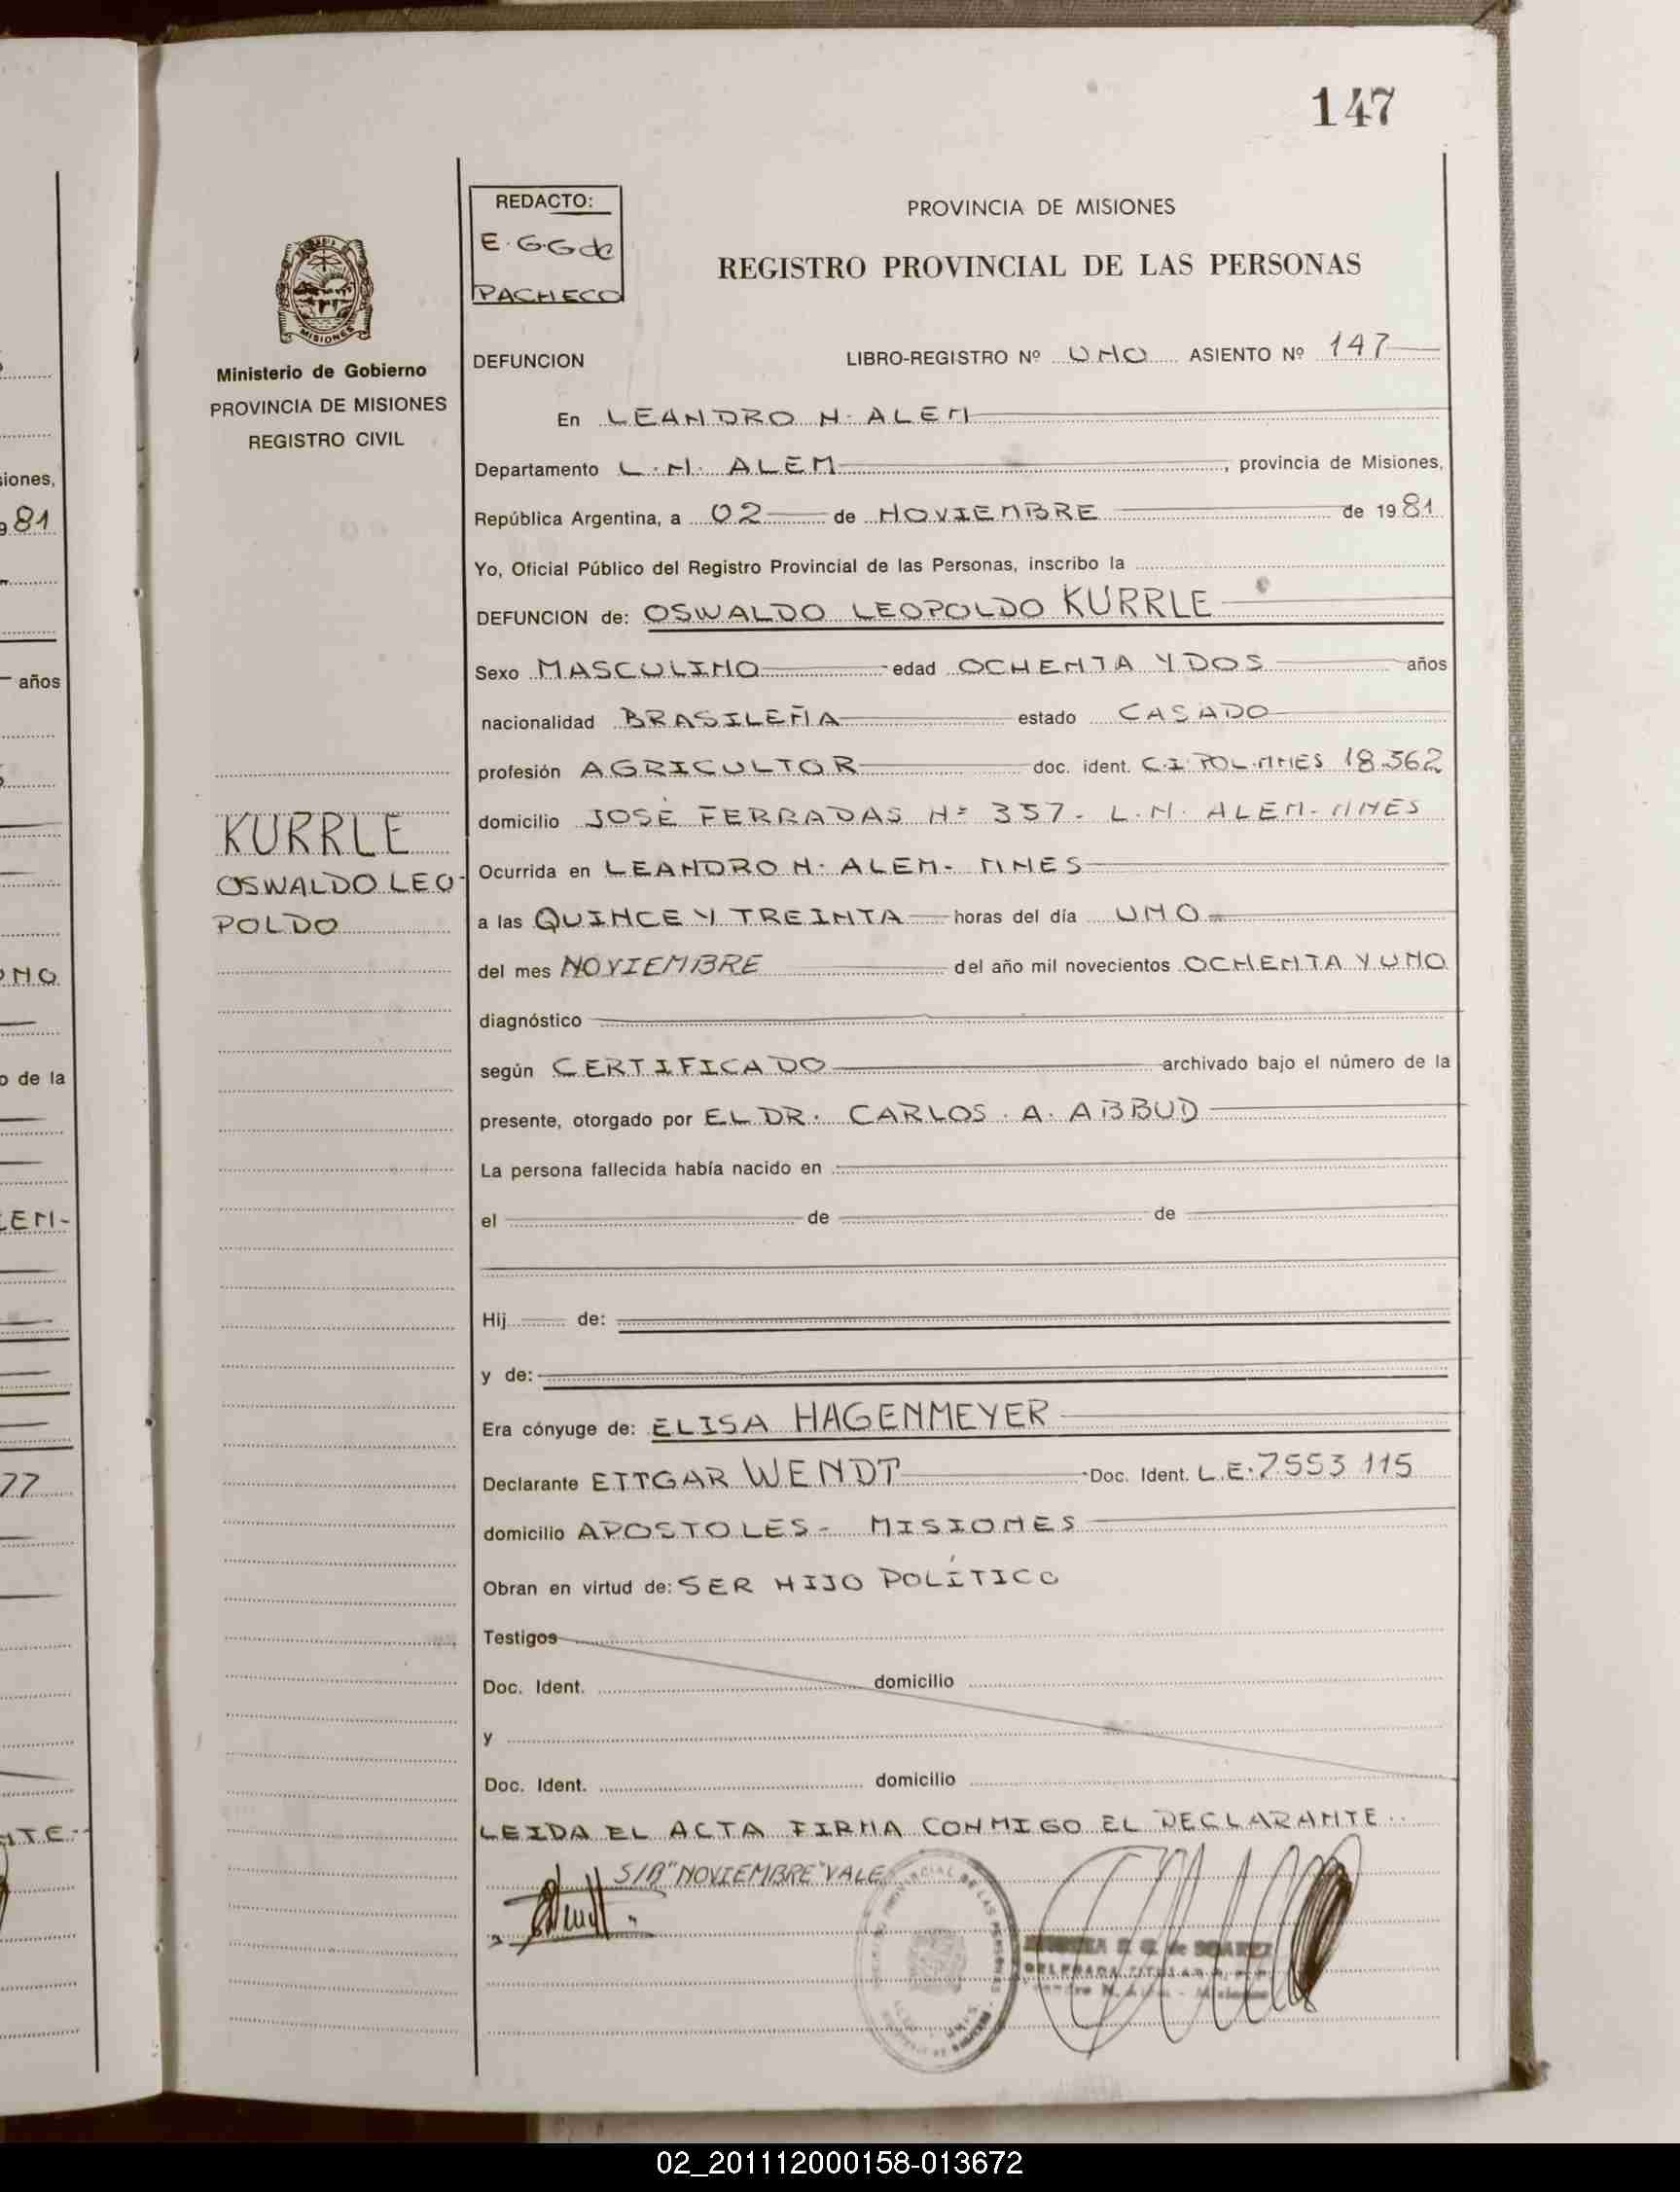 147
REDACTO:
E.G.G de
PACHECO
PROVINCIA DE MISIONES
REGISTRO PROVINCIAL DE LAS PERSONAS
MISIONES
Ministerio de Gobierno
PROVINCIA DE MISIONES
REGISTRO CIVIL
KURRLE
OSWALDO LEO-
POLDO
DEFUNCION LIBRO-REGISTRO Nº UNO ASIENTO Nº 147
En LEANDRO N. ALEM
Departamento L.N. ALEM, provincia de Misiones,
República Argentina, a 02 de NOVIEMBRE de 1981
Yo, Oficial Público del Registro Provincial de las Personas, inscribo la
DEFUNCION de: OSWALDO LEOPOLDO KURRLE
Sexo MASCULINO edad OCHENTA Y DOS años
nacionalidad BRASILEÑA estado CASADO
profesión AGRICULTOR doc. ident. C.I. POL. MNES 18.562
domicilio JOSÉ FERRADAS Nº 357- L.N. ALEM- MNES
Ocurrida en LEANDRO N. ALEM- MNES
a las QUINCE Y TREINTA horas del día UNO
del mes NOVIEMBRE del año mil novecientos OCHENTA Y UNO
diagnóstico
según CERTIFICADO archivado bajo el número de la
presente, otorgado por EL DR. CARLOS. A. ABBUD
La persona fallecida había nacido en
el de de
Hij de:
y de:
Era cónyuge de: ELISA HAGENMEYER
Declarante ETTGAR WENDT Doc. Ident. L.E. 7553 115
domicilio APOSTOLES- MISIONES
Obran en virtud de: SER HIJO POLÍTICO
Testigos
Doc. Ident. domicilio
y
Doc. Ident. domicilio
LEIDA EL ACTA FIRMA CONMIGO EL DECLARANTE..
S/B "NOVIEMBRE" VALE
de SUAREZ
iones,
981
años
UNO
o de la
LEM-
77
NTE.-
02_201112000158-013672